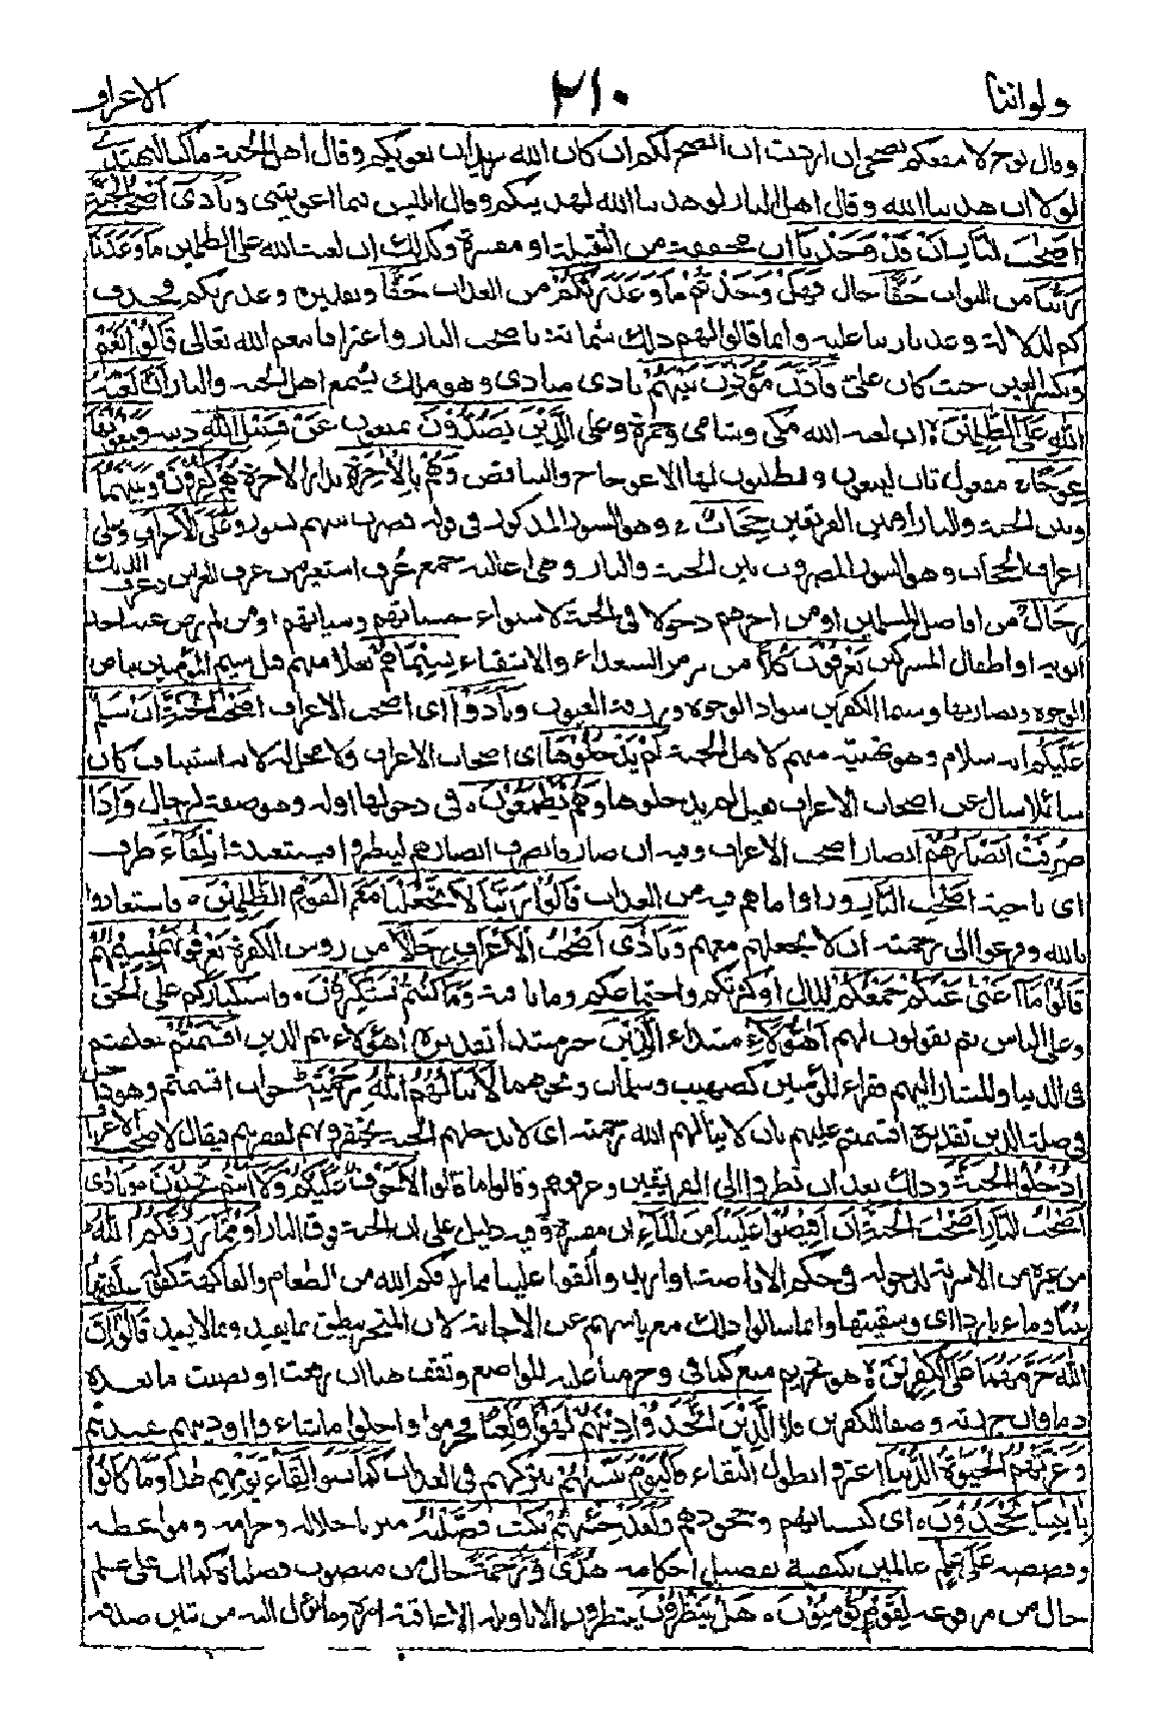 ولواننا ٢١٠ الاعراف
وقال نوح لا ينفعكم نصحي ان اردت ان انصح لكم ان كان الله يريد ان يغويكم وقال اهل الجنة ما كنا لنهتدي
لولا ان هدينا الله وقال اهل النار لو هدينا الله لهديناكم وقال ابليس بما اغويتني وَنَادَى أَصْحٰبُ الْجَنَّةِ
أَصْحٰبَ النَّارِ أَنْ قَدْ وَجَدْنَا ان مخففة من الثقيلة او مفسرة وكذلك ان لعنة الله على الظلمين مَا وَعَدَنَا
رَبُّنَا من الثواب حَقًّا حال فَهَلْ وَجَدْتُمْ مَا وَعَدَ رَبُّكُمْ من العذاب حَقًّا وتقديره وعدكم ربكم فحذف
كم لدلالة وعدنا ربنا عليه وانما قالوا لهم ذلك شماتة باصحب النار واعترافا بنعم الله تعالى قَالُوا نَعَمْ
وبكسر العين حيث كان علي فَأَذَّنَ مُؤَذِّنٌ بَيْنَهُمْ نادى مناد وهو ملك يسمع اهل الجنة والنار أَنْ لَعْنَةُ
اللهِ عَلَى الظّٰلِمِيْنَ ه ان لعنة الله مكي وشامي وحمزة وعلي الَّذِيْنَ يَصُدُّوْنَ يمنعون عَنْ سَبِيْلِ اللهِ دينه وَيَبْغُوْنَهَا
عِوَجًا ه مفعول ثان ليبغون ويطلبون لها الاعوجاج والتناقض وَهُمْ بِالْاٰخِرَةِ بدار الاخرة هُمْ كٰفِرُوْنَ وَبَيْنَهُمَا
وبين الجنة والنار او بين الفريقين حِجَابٌ ج وهو السور المذكور في قوله فضرب بينهم بسور وَعَلَى الْاَعْرَافِ وعلى
اعراف الحجاب وهو السور المضروب بين الجنة والنار وهي اعاليه جمع عرف استعير من عرف الفرس وعرف الديك
رِجَالٌ من افاضل المسلمين او من اخرهم دخولا في الجنة لاستواء حسناتهم وسياتهم او من لم يرض عنه احد
ابويه او اطفال المشركين يَعْرِفُوْنَ كُلًّا من زمر السعداء والاشقياء بِسِيْمٰهُمْ بعلامتهم قيل سيم المؤمنين بياض
الوجوه ونضارتها وسيما الكفرين سواد الوجوه وزرقة العيون وَنَادَوْا اى اصحب الاعراف اَصْحٰبَ الْجَنَّةِ اَنْ سَلٰمٌ
عَلَيْكُمْ انه سلام وهو تهنية منهم لاهل الجنة لَمْ يَدْخُلُوْهَا اى اصحاب الاعراف ولا محل له لانه استيناف كان
سائلا سال عن اصحاب الاعراف فقيل لم يدخلوها وَهُمْ يَطْمَعُوْنَ ه في دخولها او له وهو صفة لرجال وَاِذَا
صُرِفَتْ اَبْصَارُهُمْ ابصار اصحب الاعراف وفيه ان صارفا يصرف ابصارهم لينظروا فيستعيذوا تِلْقَآءَ ظرف
اى ناحية اَصْحٰبِ النَّارِ وراوا ما هم فيه من العذاب قَالُوْا رَبَّنَا لَا تَجْعَلْنَا مَعَ الْقَوْمِ الظّٰلِمِيْنَ ه فاستعاذوا
بالله وفزعوا الى رحمته ان لا يجعلهم معهم وَنَادٰى اَصْحٰبُ الْاَعْرَافِ رِجَالًا من روس الكفرة يَعْرِفُوْنَهُمْ بِسِيْمٰهُمْ
قَالُوْا مَا اَغْنٰى عَنْكُمْ جَمْعُكُمْ المال او كثرتكم واجتماعكم وما نافية وَمَا كُنْتُمْ تَسْتَكْبِرُوْنَ ه واستكباركم على الحق
وعلى الناس ثم يقولون لهم اَهٰؤُلَآءِ مبتداء الَّذِيْنَ خبر مبتدا تقديره اهؤلاء هم الذين اَقْسَمْتُمْ حلفتم
في الدنيا والمشار اليهم فقراء المؤمنين كصهيب وسلمان ونحوهما لَا يَنَالُهُمُ اللهُ بِرَحْمَةٍ جواب اقسمتم وهو داخل
في صلة الذين تقديره اقسمتم عليهم بان لا ينالهم الله برحمة اى لا يدخلهم الجنة يحتقرونهم لفقرهم فيقال لاصحب الاعراف
اُدْخُلُوا الْجَنَّةَ وذلك بعد ان نظروا الى الفريقين وعرفوهم وقالوا ما قالوا لَا خَوْفٌ عَلَيْكُمْ وَلَا اَنْتُمْ تَحْزَنُوْنَ ه وَنَادٰى
اَصْحٰبُ النَّارِ اَصْحٰبَ الْجَنَّةِ اَنْ اَفِيْضُوْا عَلَيْنَا مِنَ الْمَآءِ ان مفسرة وفيه دليل على ان الجنة فوق النار اَوْ مِمَّا رَزَقَكُمُ اللهُ
من غيره من الاشربة لدخوله في حكم الافاضة او اريد والقوا علينا مما رزقكم الله من الطعام والفاكهة كقوله علفتها
تبنا وماء باردا اى وسقيتها وانما سالوا ذلك مع ياسهم عن الاجابة لان المتحير ينطق بما يفيد وبما لا يفيد قَالُوْا اِنَّ
اللهَ حَرَّمَهُمَا عَلَى الْكٰفِرِيْنَ ه هو تحريم منع كما في وحرمنا عليه المراضع وتقف هنا ان رفعت او نصبت ما بعده
ذما وان جررته وصفا للكفرين فلا الَّذِيْنَ اتَّخَذُوْا دِيْنَهُمْ لَهْوًا وَلَعِبًا فحرموا واحلوا ما شاءوا او دينهم عيدهم
وَغَرَّتْهُمُ الْحَيٰوةُ الدُّنْيَا اغتروا بطول البقاء فَالْيَوْمَ نَنْسٰهُمْ نتركهم في العذاب كَمَا نَسُوْا لِقَآءَ يَوْمِهِمْ هٰذَا وَمَا كَانُوْا
بِاٰيٰتِنَا يَجْحَدُوْنَ ه اى كنسيانهم وجحودهم وَلَقَدْ جِئْنٰهُمْ بِكِتٰبٍ فَصَّلْنٰهُ ميزنا حلاله وحرامه ومواعظه
وقصصه عَلٰى عِلْمٍ عالمين بكيفية تفصيل احكامه هُدًى وَّرَحْمَةً حال من منصوب فصلناه كما ان على علم
حال من مرفوعه لِقَوْمٍ يُّؤْمِنُوْنَ ه هَلْ يَنْظُرُوْنَ ينتظرون الا تاويله الا عاقبة امره وما يؤل اليه من تبين صدقه